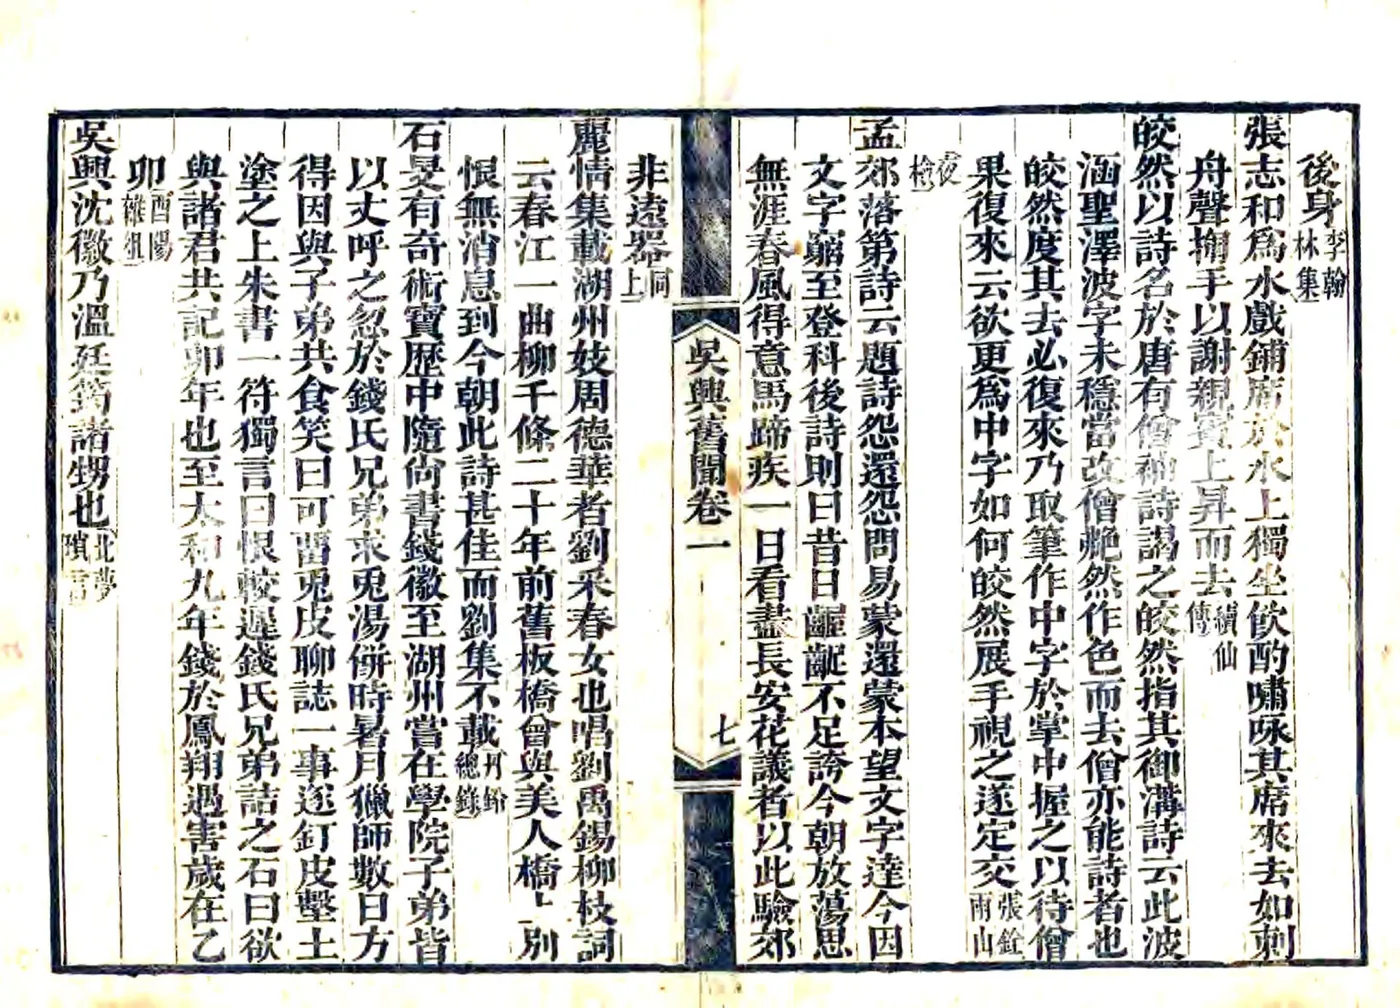 後身李翰林集
張志和爲水戲鋪席於水上獨坐飲酌嘯咏其席來去如刺
舟聲揮手以謝親賓上昇而去續仙傳
皎然以詩名於唐有僧袖詩謁之皎然指其御溝詩云此波
涵聖澤波字未穩當改僧艴然作色而去僧亦能詩者也
皎然度其去必復來乃取筆作中字於掌中握之以待僧
果復來云欲更爲中字如何皎然展手視之遂定交張銓雨山
夜槍
孟郊落第詩云題詩怨還怨問易蒙還蒙本望文字達今因
文字窮至登科後詩則曰昔日齷齪不足誇今朝放蕩思
無涯春風得意馬蹄疾一日看盡長安花議者以此驗郊
吳興舊聞卷一
七
非遠器同上
麗情集載湖州妓周德華者劉采春女也唱劉禹錫柳枝詞
云春江一曲柳千條二十年前舊板橋曾與美人橋上別
恨無消息到今朝此詩甚佳而劉集不載丹鉛總錄
石旻有奇術寶歷中隨尚書錢徽至湖州嘗在學院子弟皆
以丈呼之忽於錢氏兄弟求兎湯併時暑月獵師數日方
得因與子弟共食笑曰可留兎皮聊誌一事遂釘皮墼土
塗之上朱書一符獨言曰恨較遲錢氏兄弟詰之石曰欲
與諸君共記卯年也至太和九年錢於鳳翔遇害歲在乙
卯酉陽雜俎
吳興沈徽乃溫廷筠諸甥也北夢瑣言